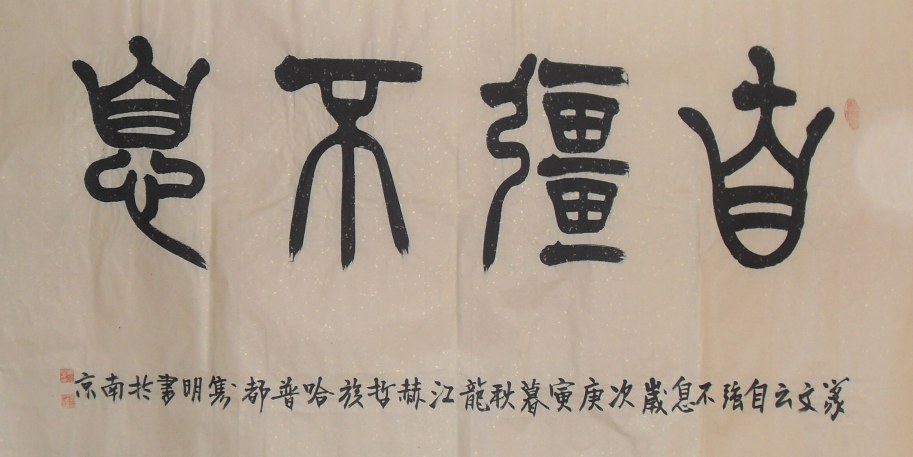 自彊不息
篆文云自強不息歲次庚寅暮秋龍江赫哲族哈普都隽明書於南京